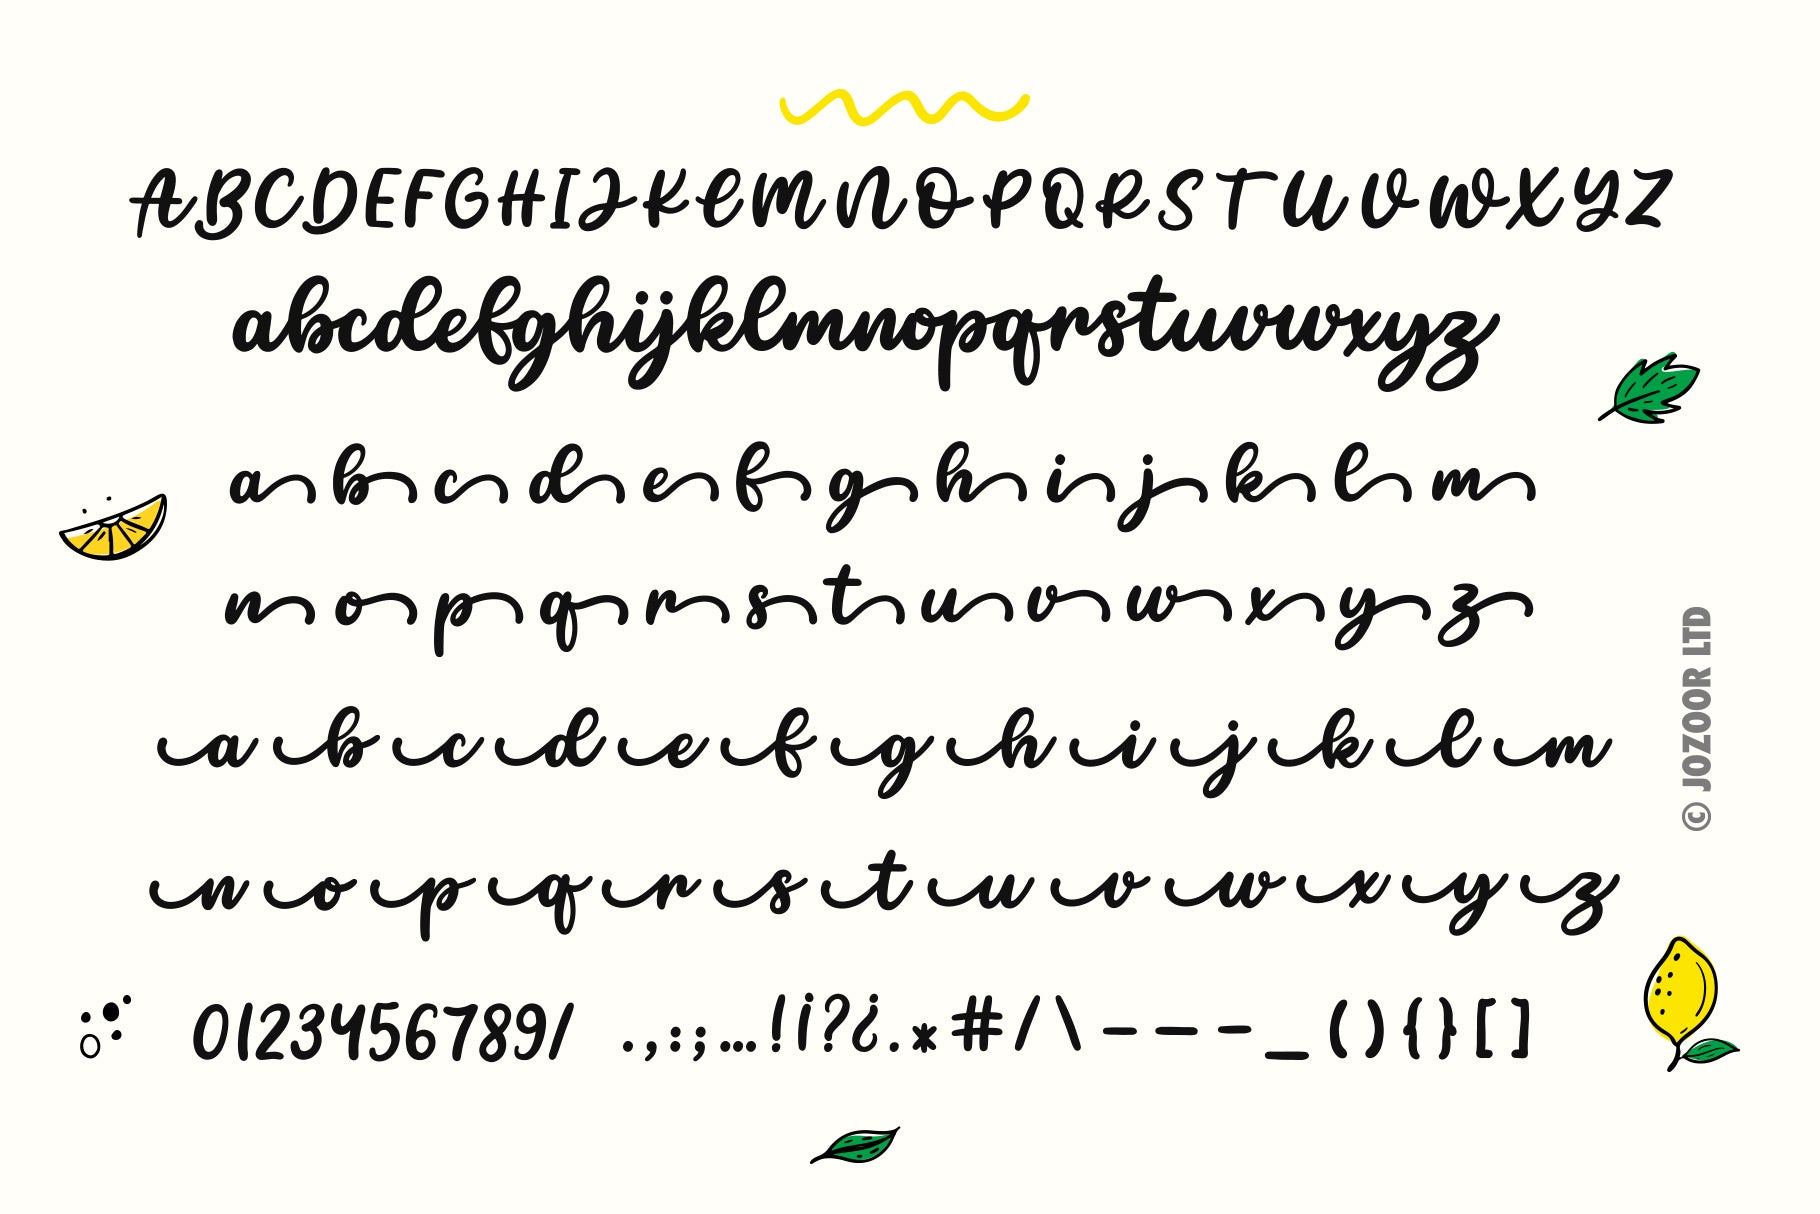 ABCDEFGHIJKLMNOPQRSTUVWXYZ
abcdefghijklmnopqrstuvwxyz
a b c d e f g h i j k l m
n o p q r s t u v w x y z
a b c d e f g h i j k l m
n o p q r s t u v w x y z
0123456789/ .,:;…!¡?¿.*#/\–—-_(){}[]
© JOZOOR LTD